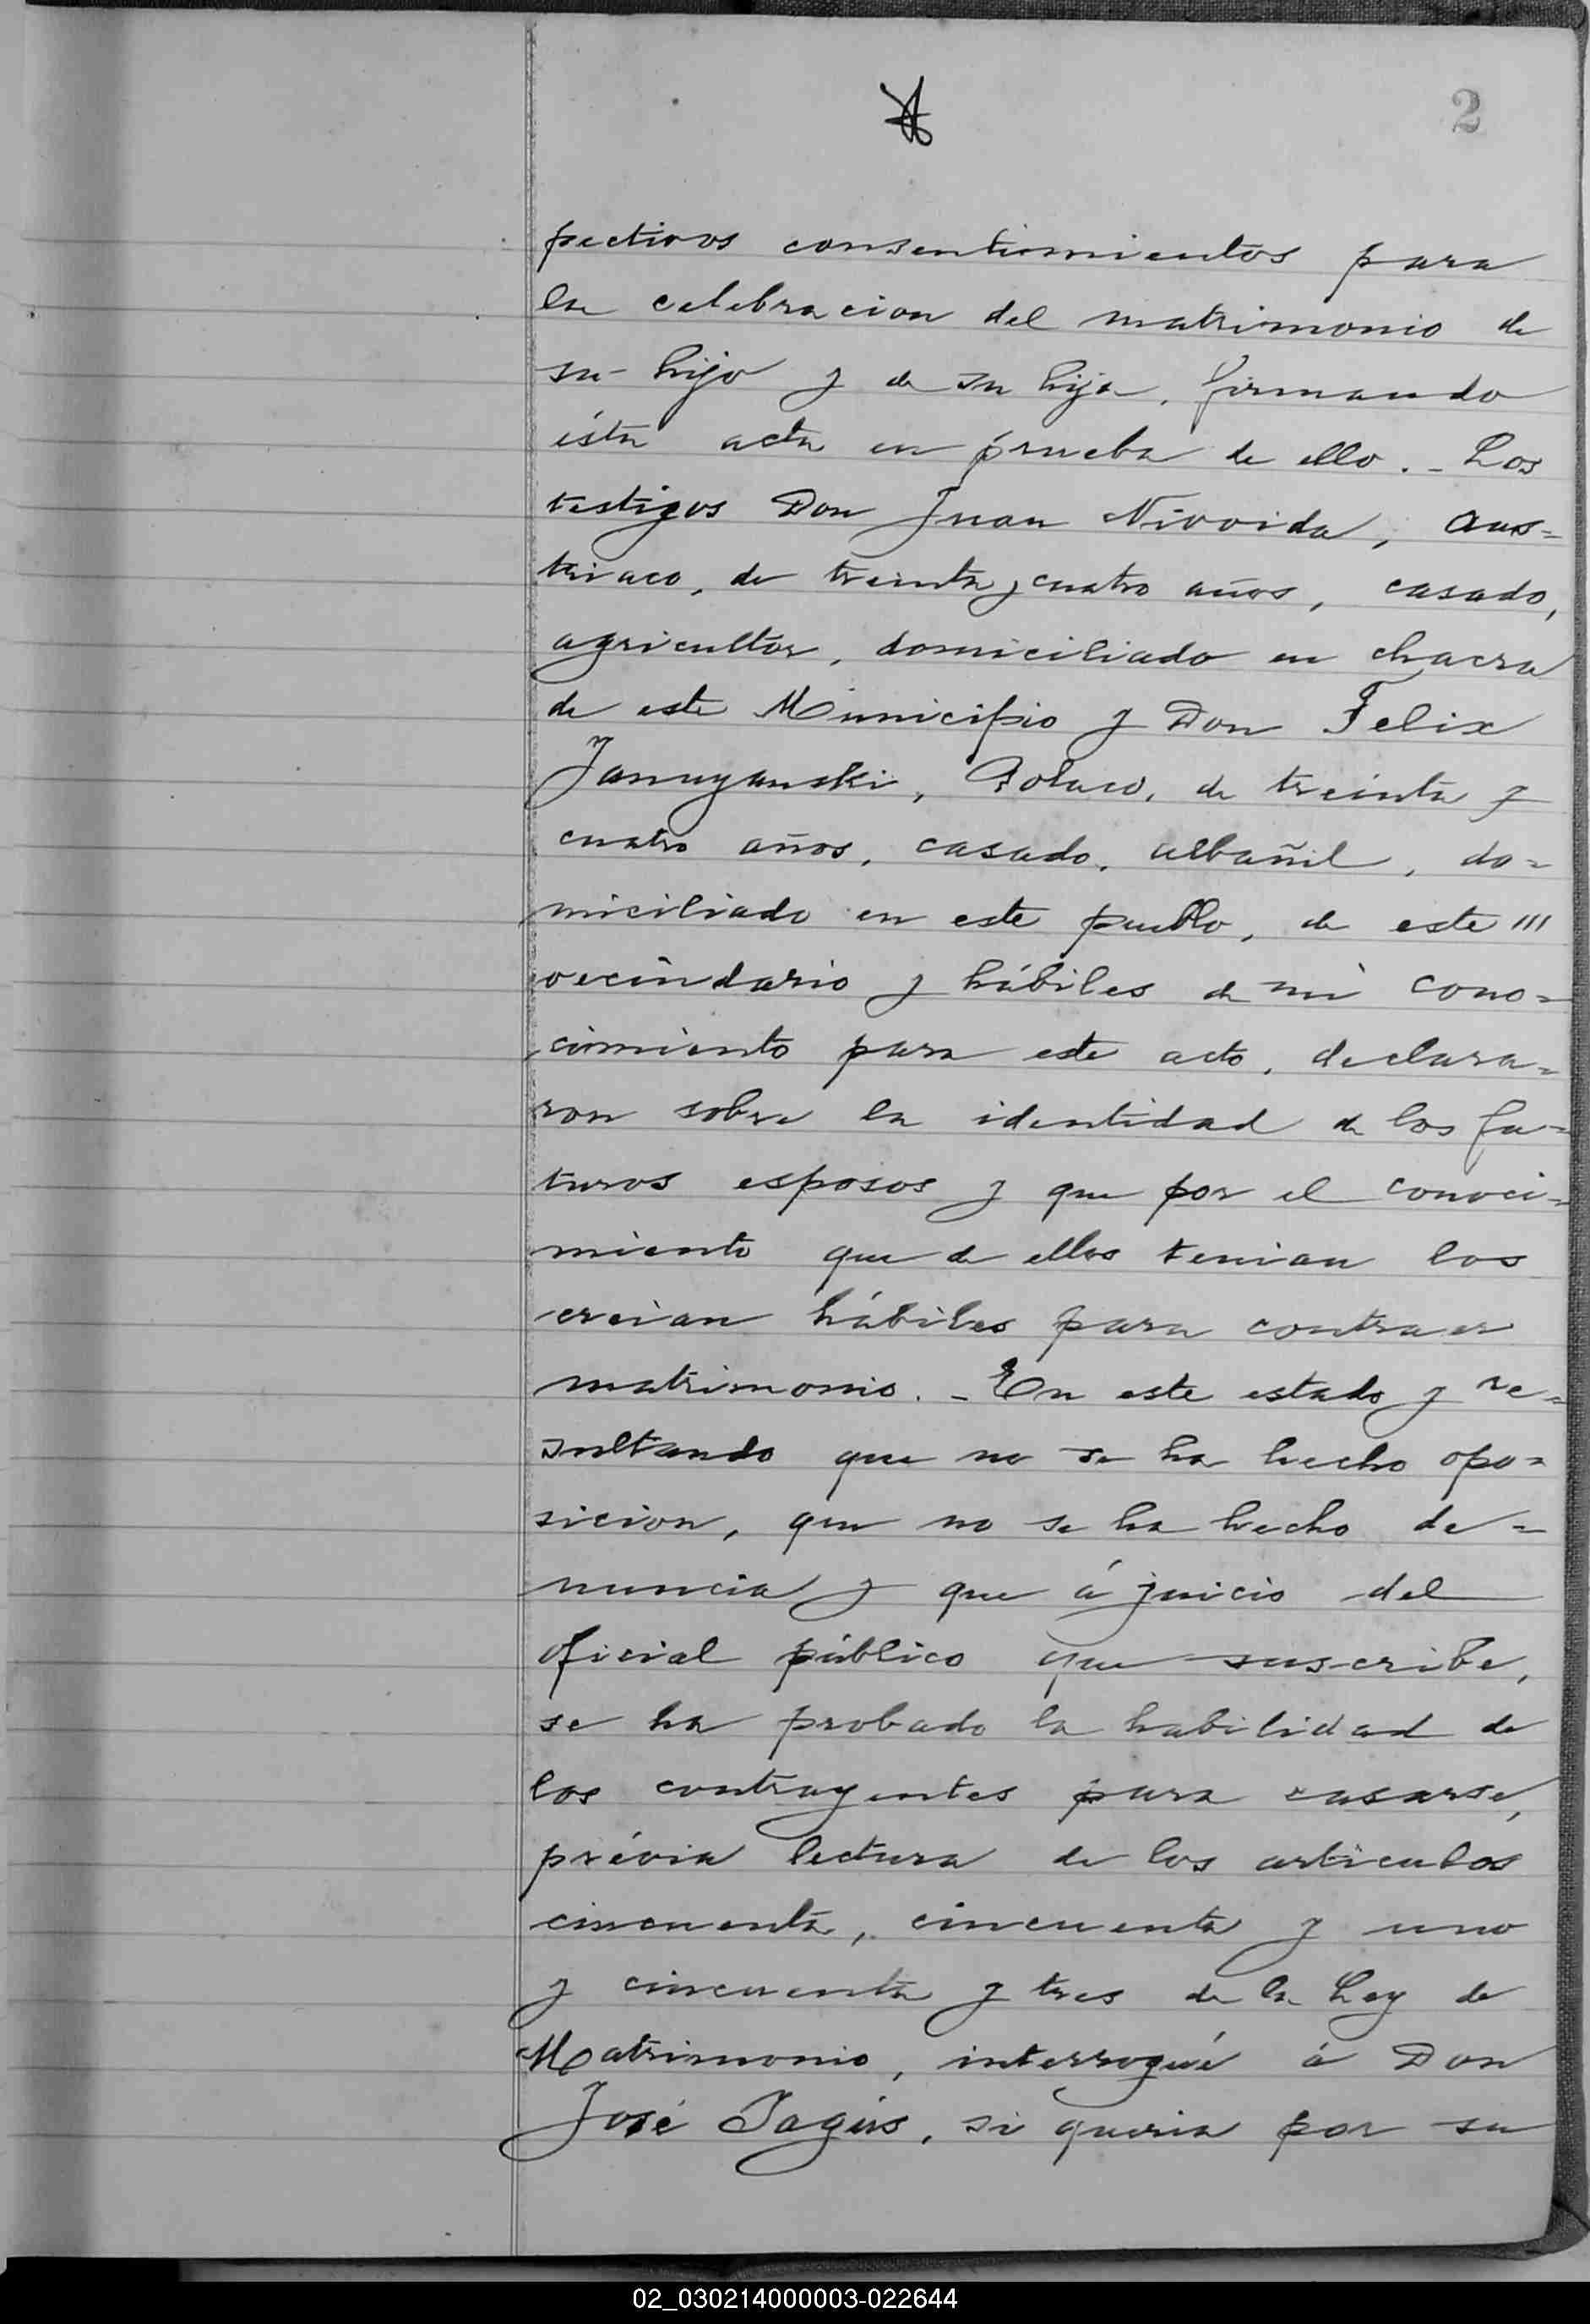 2
pectivos consentimientos para
la celebracion del matrimonio de
su hijo y de su hija, firmando
ésta acta en prueba de ello. - Los
testigos Don Juan Nivvida, aus=
triaco, de treinta y cuatro años, casado,
agricultor, domiciliado en chacra
de este Municipio y Don Felix
Januyanski, Polaco, de treinta y
cuatro años, casado, albañil, do=
miciliado en este pueblo, de este
vecindario y hábiles de mi cono=
cimiento para este acto, declara=
ron sobre la identidad de los fu=
turos esposos y que por el conoci=
miento que de ellos tenian los
creian hábiles para contraer
matrimonio. - En este estado y re=
sultando que no se ha hecho opo=
sicion, que no se ha hecho de=
nuncia y que á juicio del
oficial público que suscribe,
se ha probado la habilidad de
los contrayentes para casarse,
prévia lectura de los articulos
cincuenta, cincuenta y uno
y cincuenta y tres de la Ley de
Matrimonio, interrogué á Don
José, si queria por su
02_030214000003-022644